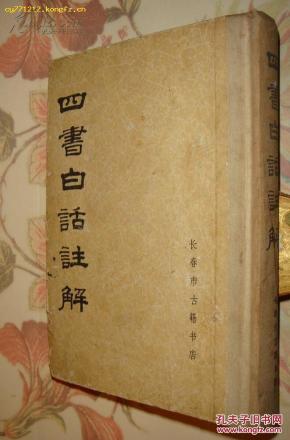 cy771212.kongfz.cn
四書白話註解
长春市古籍书店
四書白話註解
孔夫子旧书网
www.kongfz.com